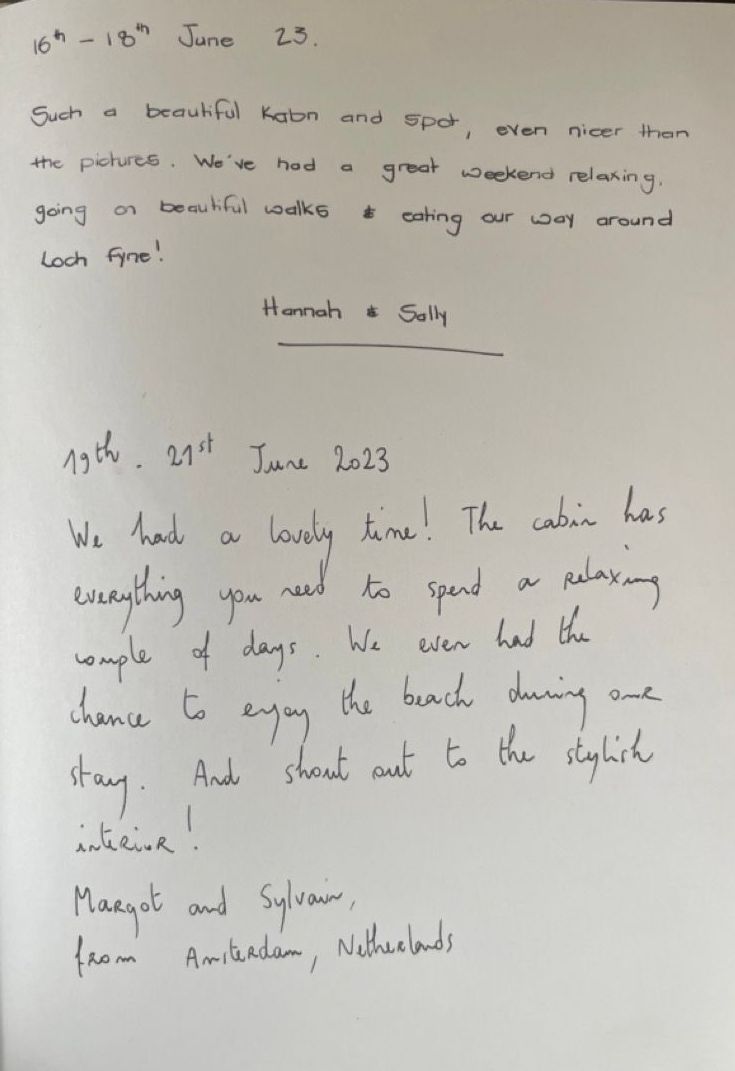 16th - 18th June 23.
Such a beautiful Kabn and spot, even nicer than
the pictures. We've had a great weekend relaxing,
going on beautiful walks & eating our way around
Loch Fyne!
Hannah & Sally
19th. 21st June 2023
We had a lovely time! The cabin has
everything you need to spend a relaxing
couple of days. We even had the
chance to enjoy the beach during our
stay. And shout out to the stylish
interior!
Margot and Sylvain,
from Amsterdam, Netherlands